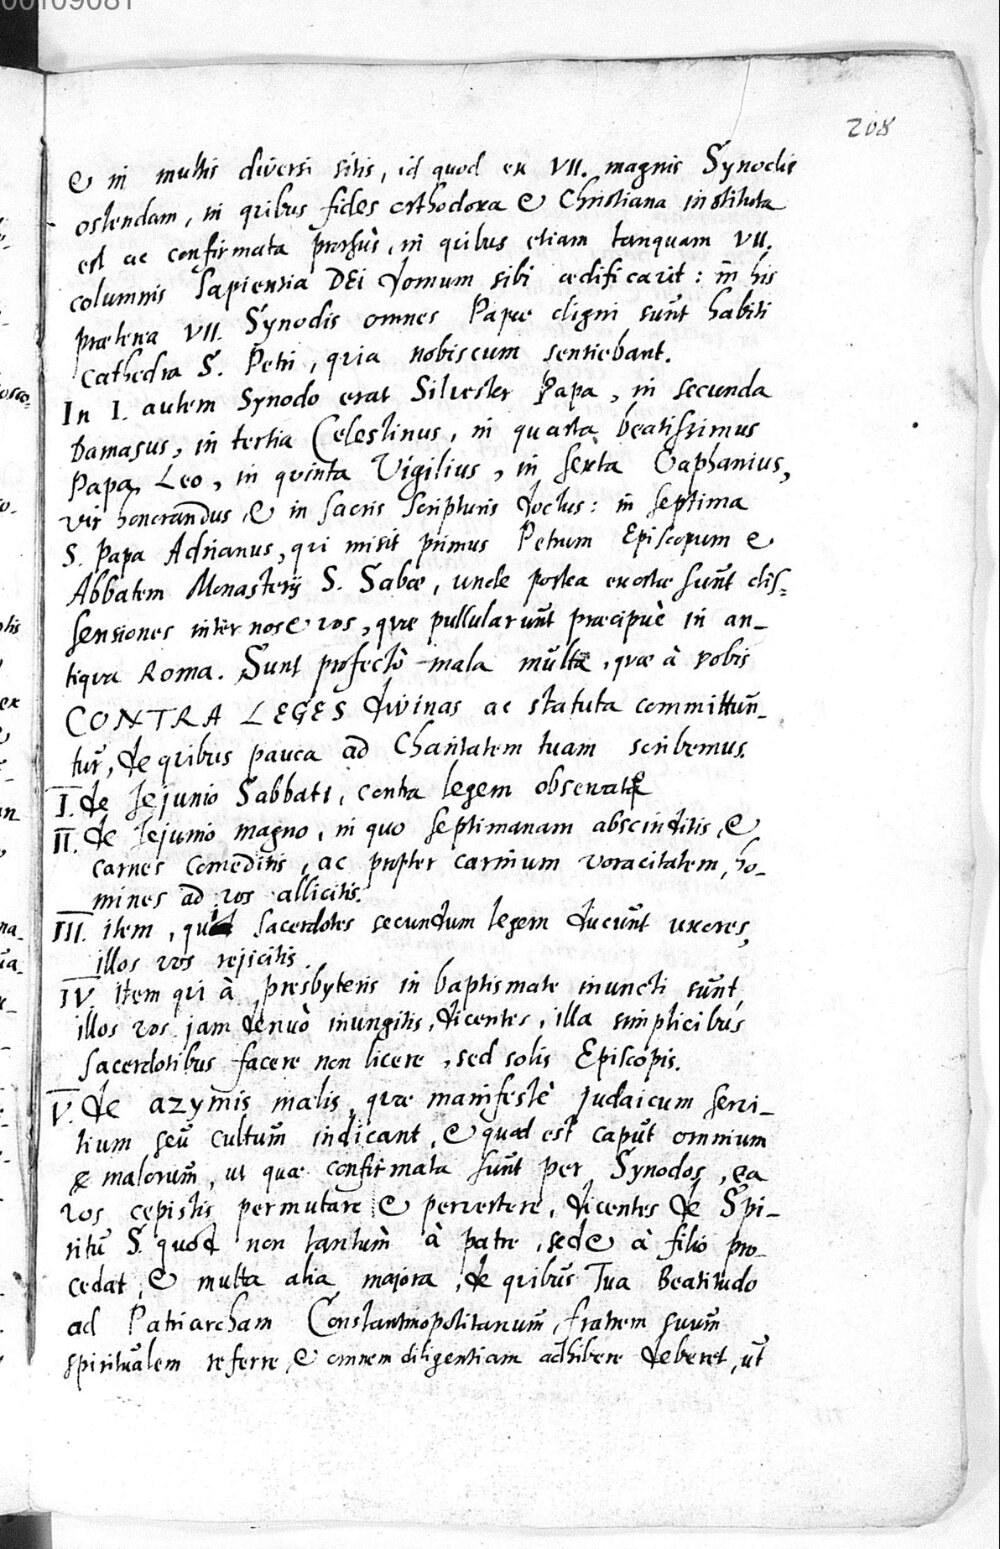 00109081
208
& in multis diversi sitis, id quod ex VII. magnis Synodis
ostendam, in quibus fides orthodoxa & Christiana instituta
est ac confirmata prorsùs, in quibus etiam tanquam VII.
columnis Sapientia DEi domum sibi ædificavit: in his
præterea VII. Synodis omnes Papæ digni sunt habiti
Cathedra S. Petri, quia nobiscum sentiebant.
In I. autem Synodo erat Silvester Papa, in secunda
Damasus, in tertia Celestinus, in quarta beatissimus
Papa Leo, in quinta Vigilius, in sexta Oaphanius,
vir honorandus & in sacris scripturis doctus: in septima
S. Papa Adrianus, qui misit primus Petrum Episcopum &
Abbatem Monasterij S. Sabæ, unde postea exortæ sunt dis=
sensiones inter nos & vos, quæ pullularunt præcipuè in an_
tiqua Roma. Sunt profectò mala multa, quæ à vobis
CONTRA LEGES divinas ac statuta committun_
tur, de quibus pauca ad Charitatem tuam scribemus.
I. de Jejunio Sabbati, contra legem observato
II. de Jejunio magno, in quo septimanam abscinditis, &
carnes comeditis, ac propter carnium voracitatem, ho_
mines ad vos allicitis.
III. item, quòd sacerdotes secundum legem ducunt uxores,
illos vos rejicitis.
IV. item qui à presbyteris in baptismate inuncti sunt,
illos vos jam denuò inungitis, dicentes, illa simplicibus
sacerdotibus facere non licere, sed solis Episcopis.
V. de azymis malis, quæ manifestè judaicum servi_
tium seu cultum indicant, & quod est caput omnium
malorum, ut quæ confirmata sunt per Synodos, ea
vos cepistis permutare & pervertere, dicentes de Spi_
ritu S. quòd non tantùm à patre, sed & à filio pro_
cedat, & multa alia majora, de quibus Tua Beatitudo
ad Patriarcham Constantinopolitanum, fratrem suum
spiritualem referre, & omnem diligentiam adhibere deberet, ut